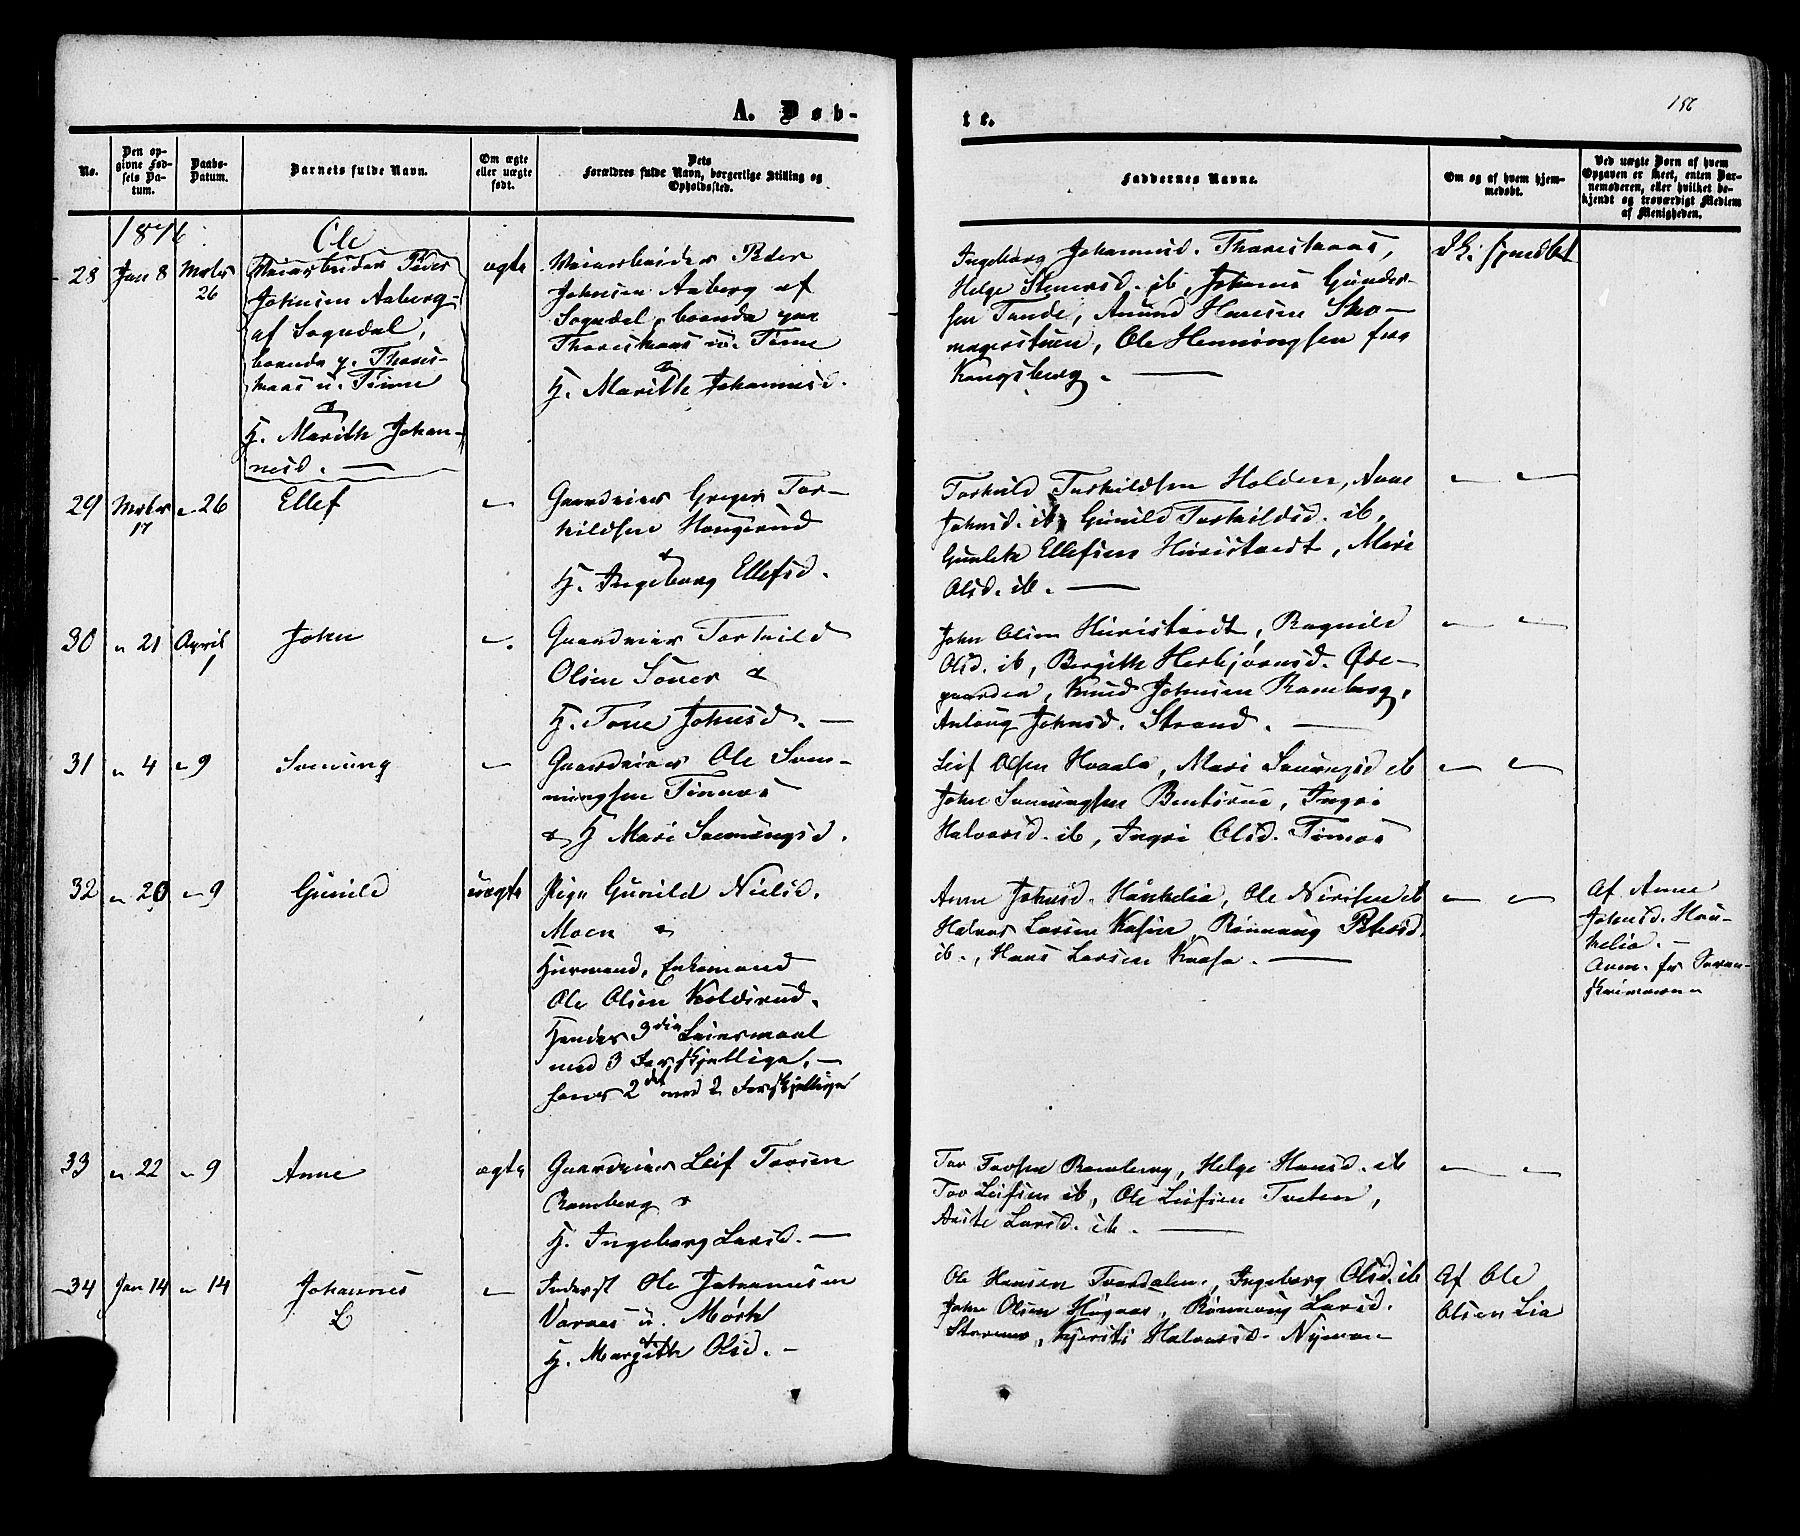 156
A. Døb-
te.
No.
Den op-
givne Fød-
sels Da-
tum.
Daabs-
Datum.
Barnets fulde Navn.
Om ægte
eller uægte
født.
Dets
Forældres fulde Navn, borgerlige Stilling og
Opholdssted.
Faddernes Navne.
Om og af hvem hjem-
medøbt.
Ved uægte Børn af hvem
Opgaven er skeet, enten Bar-
nemoderen, eller hvilket be-
kjendt og troværdigt Medlem
af Menigheden.
1876
28
Jan 8
Marts
26
Ole
Veiarbeider Peder
Johnsen Aaberg
af Sogndal,
boende p. Thores-
kaas u. Tinne
&
H. Marith Johan-
nesd. —
ægte
Veiarbeider Peder
Johnsen Aaberg af
Sogndal, boende paa
Thoreskaas u. Tinne
&
H. Marith Johannesd.
Ingeborg Johannesd. Thoreskaas,
Helge Steners d. ib, Johanne Gunder-
sen Tande, Amund Hansen Sko-
magerstuen, Ole Henningsen fra
Kongsberg. —
29
Marts
17
" 26
Ellef
"
Gaardeier Greger Tor-
kildsen Haugerud
&
H. Ingeborg Ellefsd.
Torkild Torkildsen Holden, Anne
Johnsd. ib, Gunild Torkildsd. ib,
Gunlek Ellefsen Hvristvedt, Mari
Olsd. ib. —
" "
30
" 21
April
1
John
"
Gaardeier Torkild
Olsen Sower &
H. Tone Johnsd. —
John Olsen Hvristvedt, Ragnild
Olsd. ib, Bergith Herbjørnsd. Øde-
gaarden, Knud Johnsen Ramberg,
Anlaug Johnsd. Strand. —
" "
31
" 4
" 9
Sæmung
"
Gaardeier Ole Sæm-
mungsen Tinnes
& H Mari Sæmungsd.
Leif Olsen Hvaala, Mari Sæmungsd ib
John Sæmungsen Bentsrue, Ingri
Halvorsd. ib, Ingri Olsd. Tinnes
" "
32
" 20
" 9
Gunild
uægte
Pige Gunild Nielsd.
Moen &
Huusmand, Enkemand
Ole Olsen Koldsrud.
Hendes 3die Leiermaal
med 3 Forskjellige, —
hans 2det med 2 Forskjellige
Anne Johnsd. Haukelia, Ole Nirisen ib
Halvor Larsen Kasin, Rønnaug Petersd.
ib., Hans Larsen Kaasa. —
" "
Af Anne
Johnsd. Hau-
kelia. —
33
" 22
" 9
Anne
ægte
Gaardeier Leif Tovsen
Ramberg &
H. Ingeborg Larsd. —
Tov Tovsen Ramberg, Helge Hansd. ib
Tov Leifsen ib, Ole Leifsen Tveten,
Aaste Larsd. ib. —
" "
34
Jan 14
" 14
Johannes
L
"
Inderst Ole Johannesen
Varaas u. Mørk
&
H. Margith Olsd. —
Ole Hansen Tverdalen, Ingeborg Olsd. ib
John Olsen Høgaas, Rønnaug Larsd.
Kjersti Halvorsd. Nymoen
Af Ole
Olsen Lia